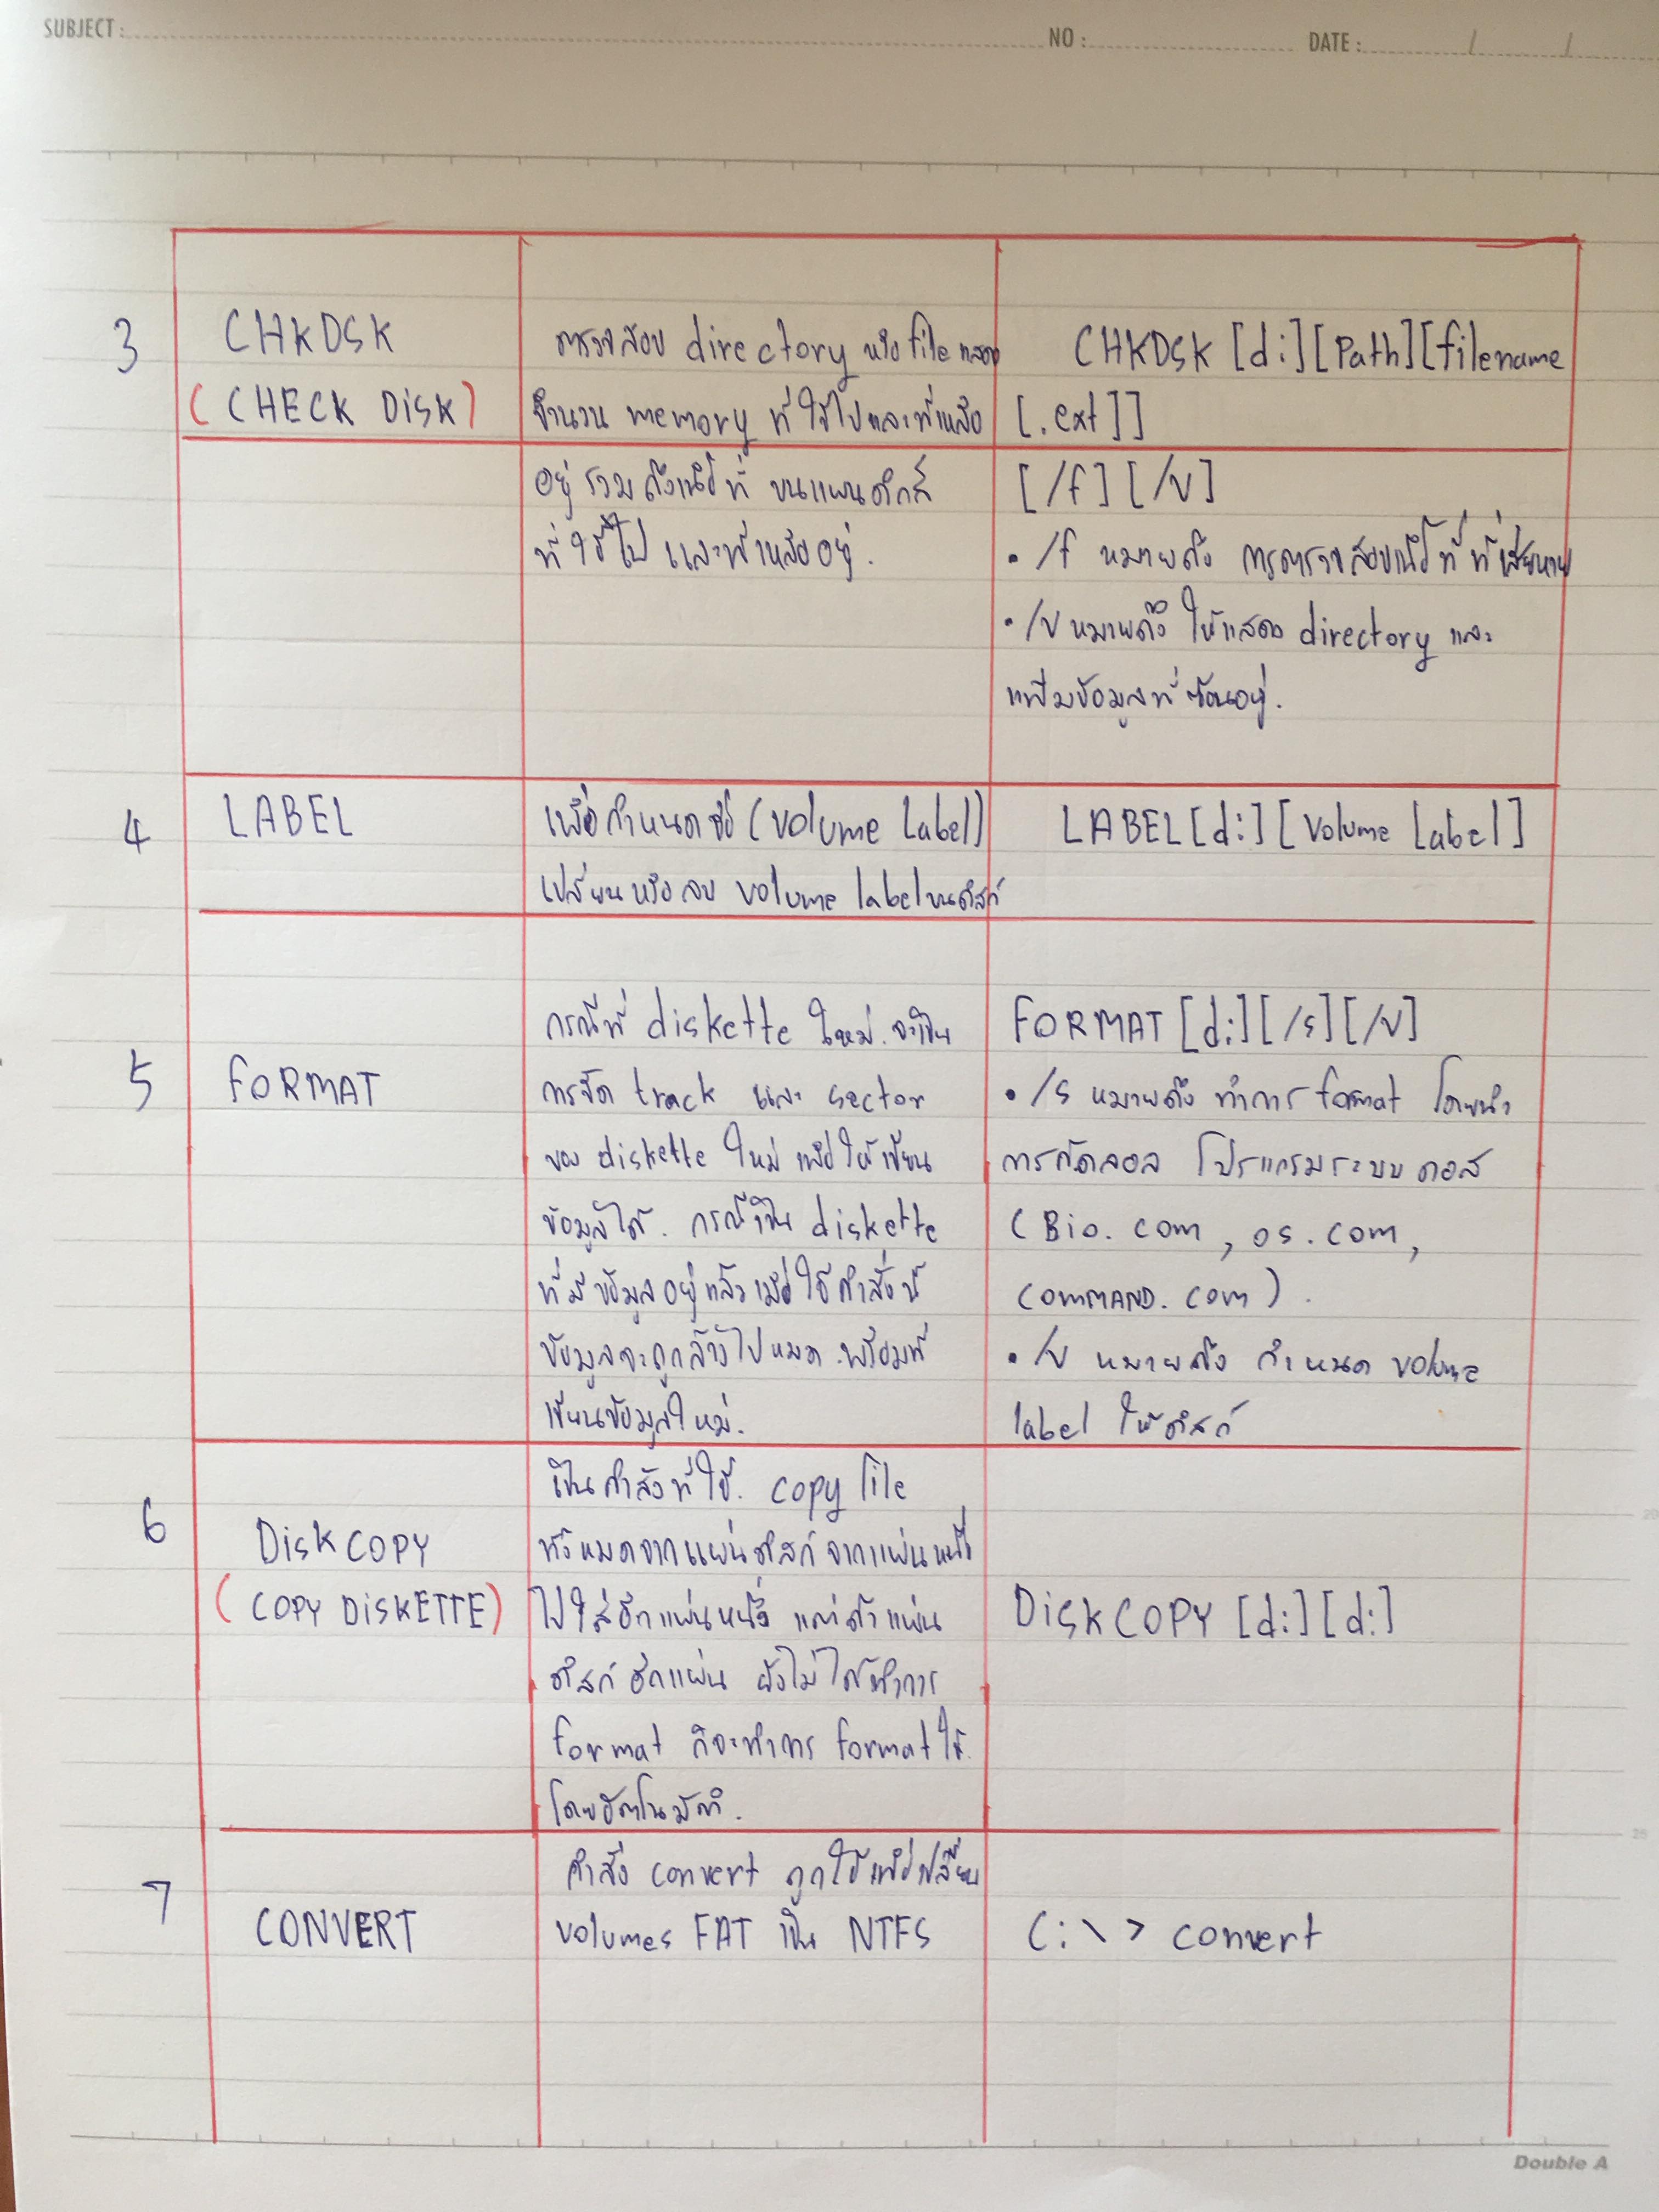 SUBJECT :
NO :
DATE : / /
3
CHKDSK
(CHECK DISK)
ตรวจสอบ directory หรือ file แสดง
จำนวน memory ที่ใช้ไปและที่เหลือ
อยู่ รวมถึงเนื้อที่ บนแผนดิกส์
ที่ใช้ไป และที่เหลืออยู่.
CHKDSK [d:][Path][filename
[.ext]]
[/f] [/V]
• /f หมายถึง การตรวจสอบเนื้อที่ ที่เสียหาย
• /V หมายถึง ให้แสดง directory และ
แฟ้มข้อมูลที่ซ้อนอยู่.
4
LABEL
เพื่อกำหนดชื่อ (volume Label)
เปลี่ยนหรือลบ volume label บนดิสก์
LABEL [d:] [Volume Label]
5
FORMAT
กรณีที่ diskette ใหม่. จะเป็น
การจัด track และ sector
ของ diskette ใหม่ เพื่อให้เขียน
ข้อมูลได้. กรณีเป็น diskette
ที่มีข้อมูลอยู่แล้วเมื่อใช้คำสั่งนี้
ข้อมูลจะถูกล้างไปหมด.พร้อมที่
เขียนข้อมูลใหม่.
FORMAT [d:] [/s] [/V]
• /s หมายถึง ทำการ format โดยนำ
การคัดลอก โปรแกรมระบบ ดอส
(Bio.com, os.com,
COMMAND.com).
• /V หมายถึง กำหนด volume
label ให้ดิสก์
6
DiskCOPY
(COPY DISKETTE)
เป็นคำสั่งที่ใช้. copy file
ทั้งหมดจากแผ่นดิสก์ จากแผ่นหนึ่ง
ไปใส่อีกแผ่นหนึ่ง แต่ถ้าแผ่น
ดิสก์ อีกแผ่น ยังไม่ได้ทำการ
format ก็จะทำการ format ให้
โดยอัตโนมัติ.
DiskCOPY [d:] [d:]
7
CONVERT
คำสั่ง convert ถูกใช้เพื่อเปลี่ยน
volumes FAT เป็น NTFS
C:\> convert
Double A